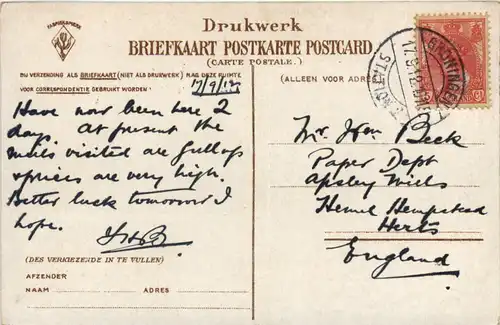 FABRIEKSMERK
Drukwerk
BRIEFKAART POSTKARTE POSTCARD.
(CARTE POSTALE.)
BIJ VERZENDING ALS BRIEFKAART (NIET ALS DRUKWERK) MAG DEZE RUIMTE
VOOR CORRESPONDENTIE GEBRUIKT WORDEN
(ALLEEN VOOR ADRES
GRONINGEN
STATION
17/9/12
Have now been here 2
days. At present the
mills visited are full of
& prices are very high.
Better luck tomorrow I
hope.
Mr Wm Beck
Paper Dept
Apsley Mills
Hemel Hempstead
Herts
England
(DES VERKIEZENDE IN TE VULLEN)
AFZENDER
NAAM
ADRES